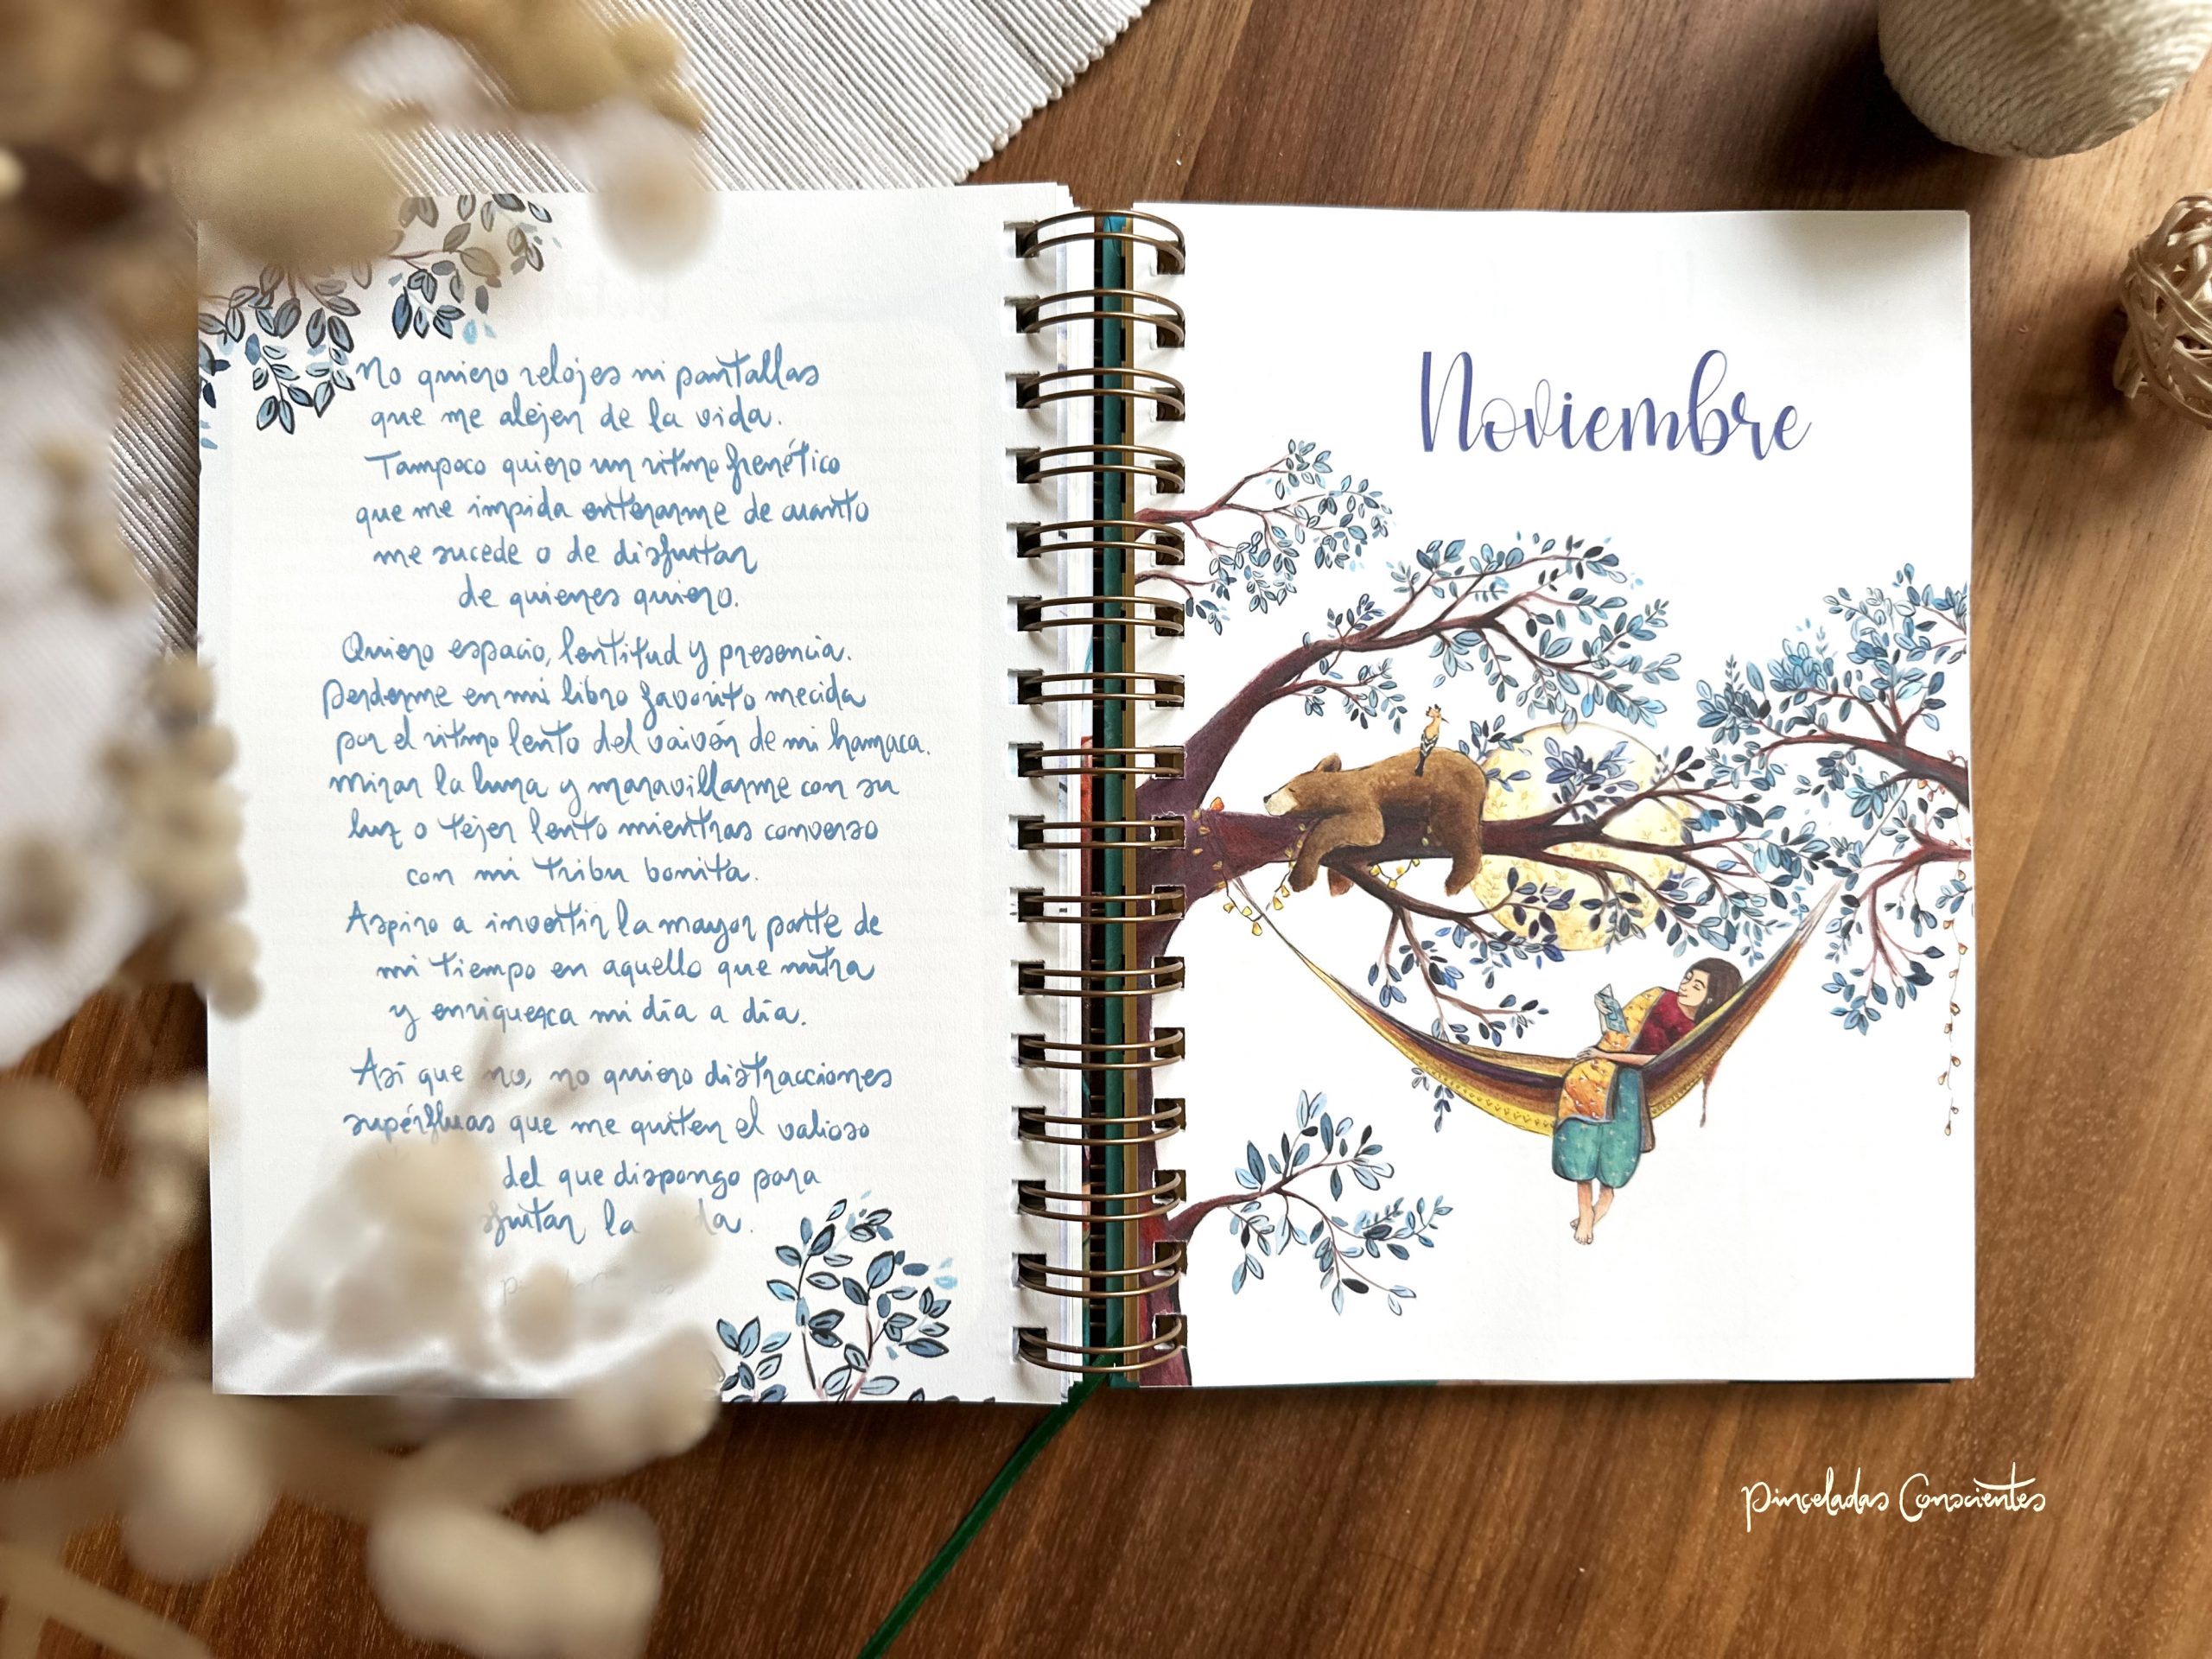 No quiero relojes ni pantallas
que me alejen de la vida.
Tampoco quiero un ritmo frenético
que me impida enterarme de cuanto
me sucede o de disfrutar
de quienes quiero.
Quiero espacio, lentitud y presencia.
Perderme en mi libro favorito mecida
por el ritmo lento del vaivén de mi hamaca.
Mirar la luna y maravillarme con su
luz o tejer lento mientras converso
con mi tribu bonita.
Aspiro a invertir la mayor parte de
mi tiempo en aquello que nutra
y enriquezca mi día a día.
Así que no, no quiero distracciones
supérfluas que me quiten el valioso
del que dispongo para
la
Noviembre
Pinceladas Conscientes